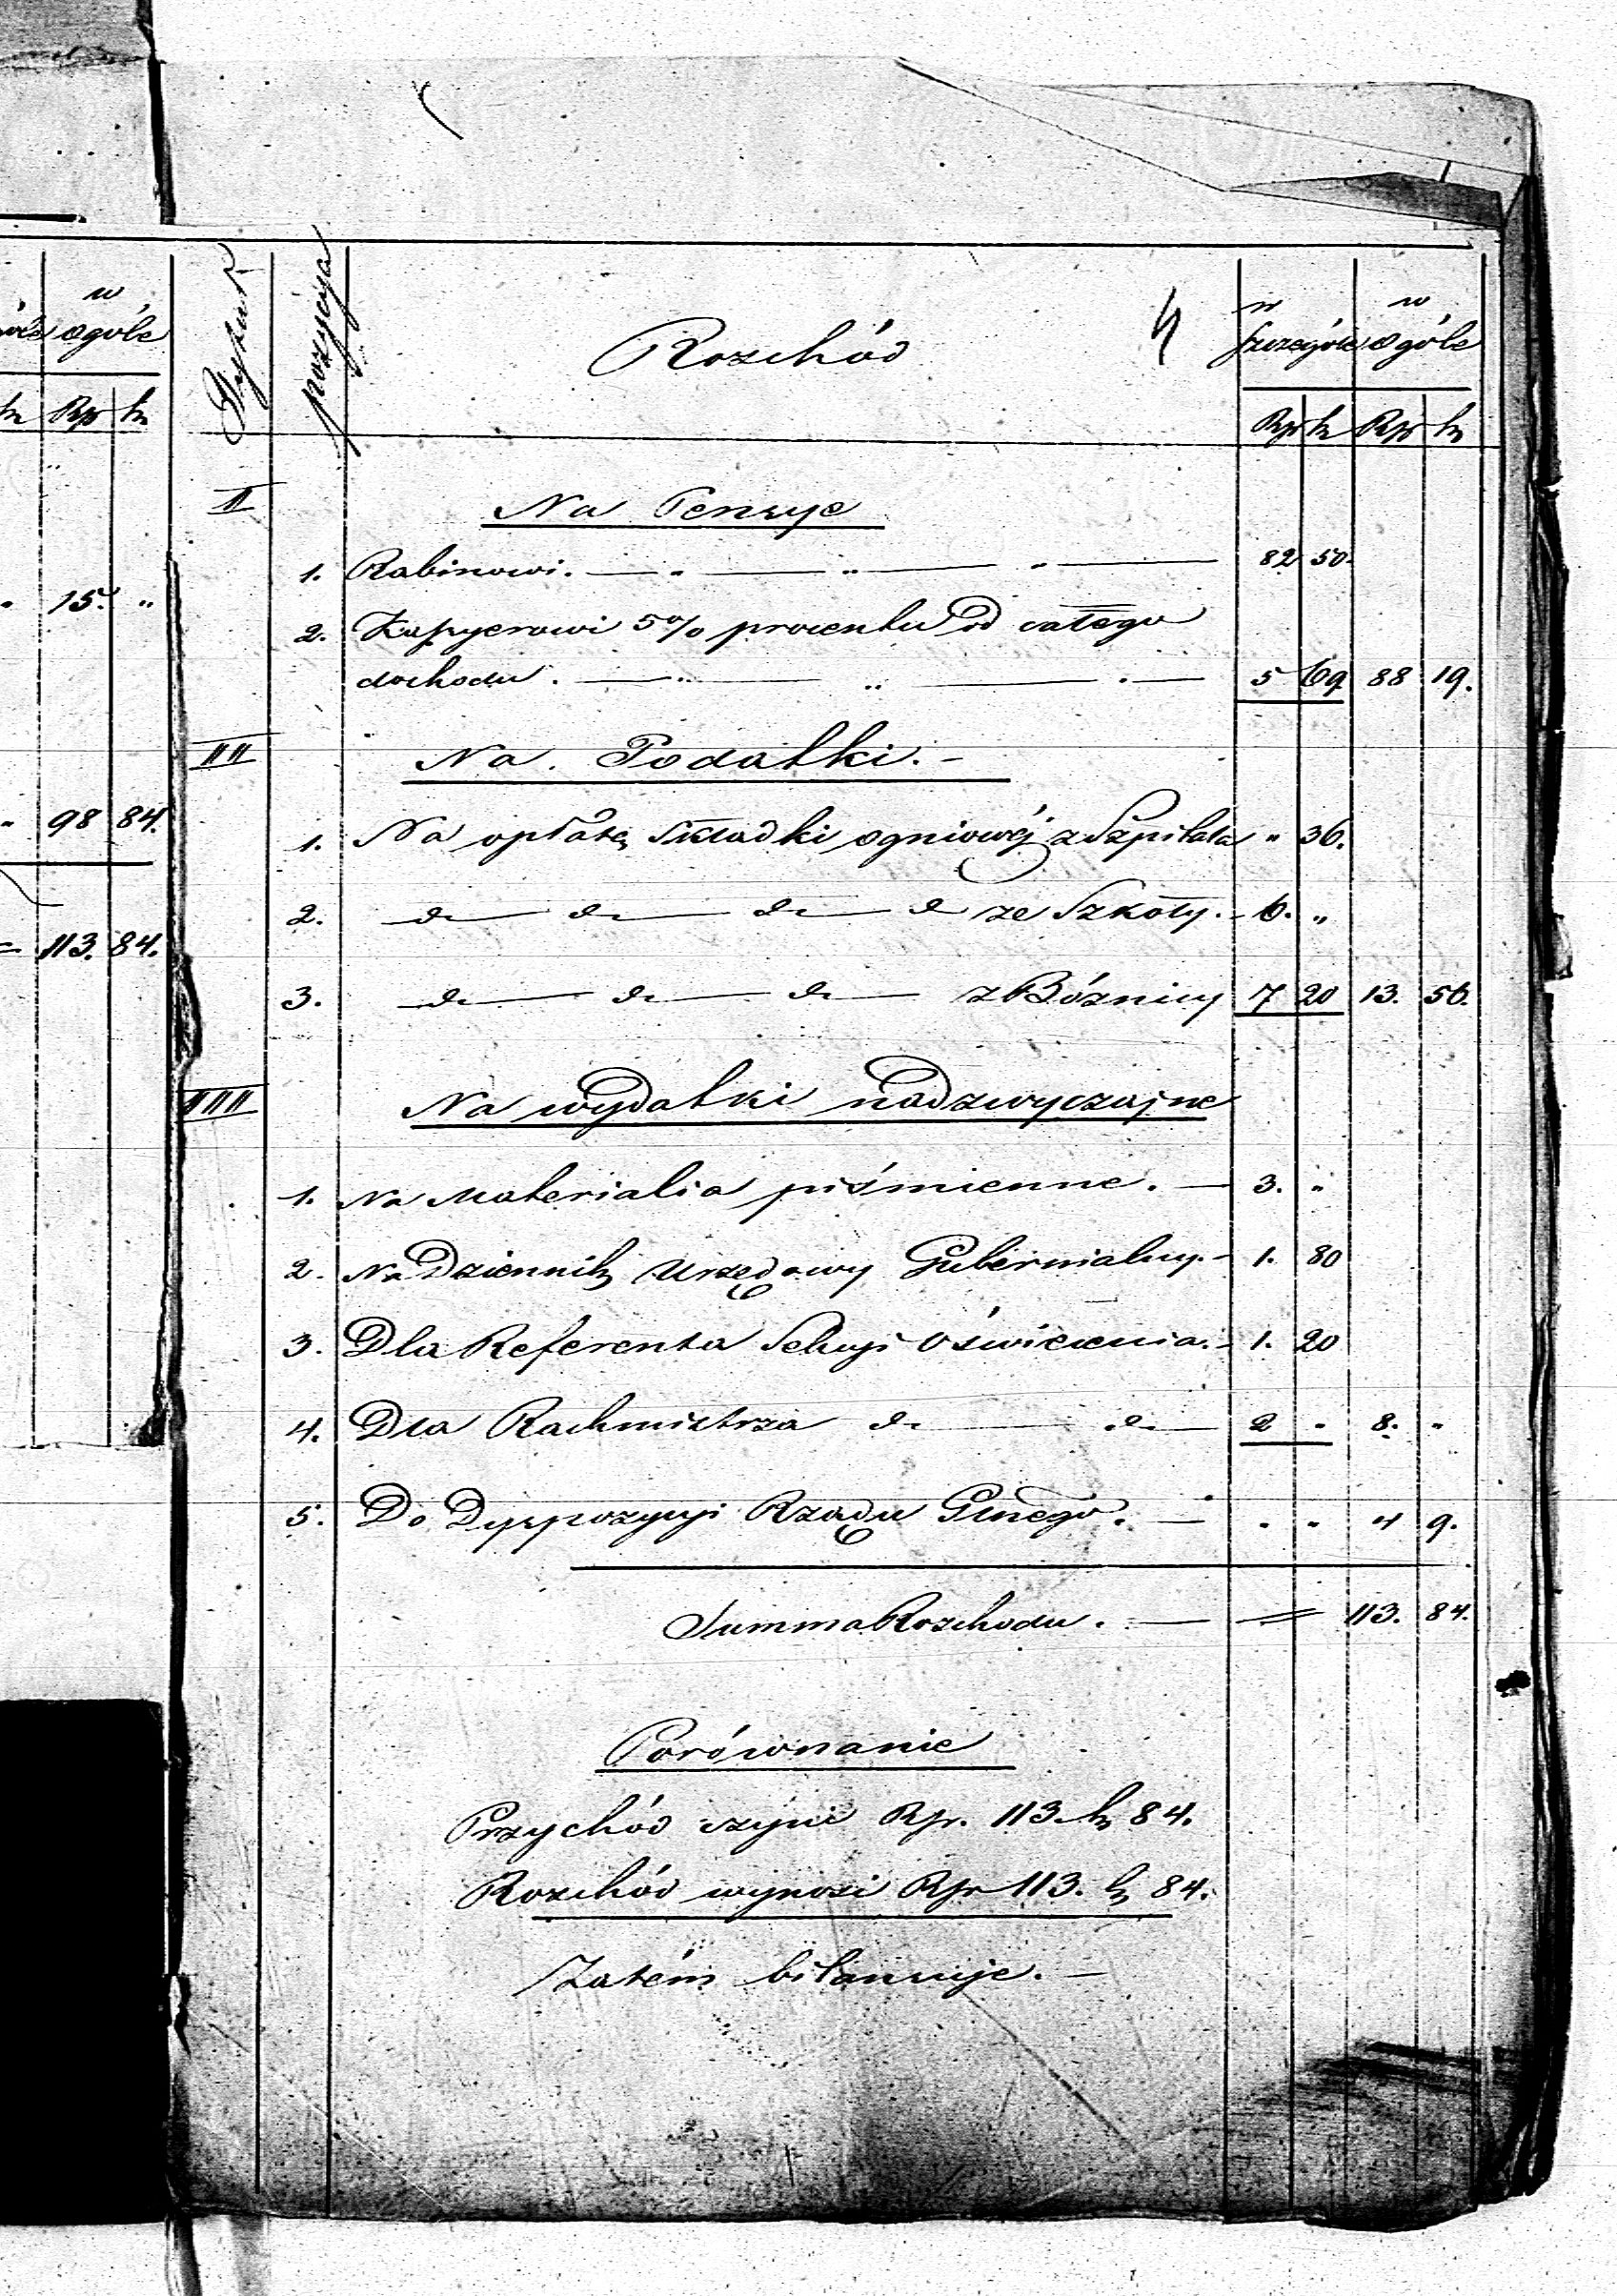 w
ogóle
Rs k
15. "
98 84.
= 113. 84.
Tytuł
pozycya
Rozchód
w Szczególe
w Ogóle
Rsr k Rsr k
I
Na Pensye
1. Rabinowi. — " — " — " — 82 50.
2. Kassyerowi 5% procentu od całego
dochodu. — " — " — 5 69 88 19.
II
Na Podatki. -
1. Na opłatę Składki ogniowéj z Szpitala " 36.
2. do — do — do — do ze Szkoły. - 6. "
3. do — do — do — z Bóźnicy 7 20 13. 56.
III
Na wydatki nadzwyczajne
1. Na Materialia piśmienne. — 3. "
2. Na Dziennik Urzędowy Gubernialny. - 1. 80
3. Dla Referenta Sekcyi Oświecenia. - 1. 20
4. Dla Rachmistrza do — do — 2 " 8. "
5. Do Dyspozycyi Rządu Gnego. — " " 4 9.
Summa Rozchodu. — = 113. 84.
Porównanie
Przychód czyni Rsr. 113. k 84.
Rozchód wynosi Rsr 113. k 84.
Zatém bilansuje. —